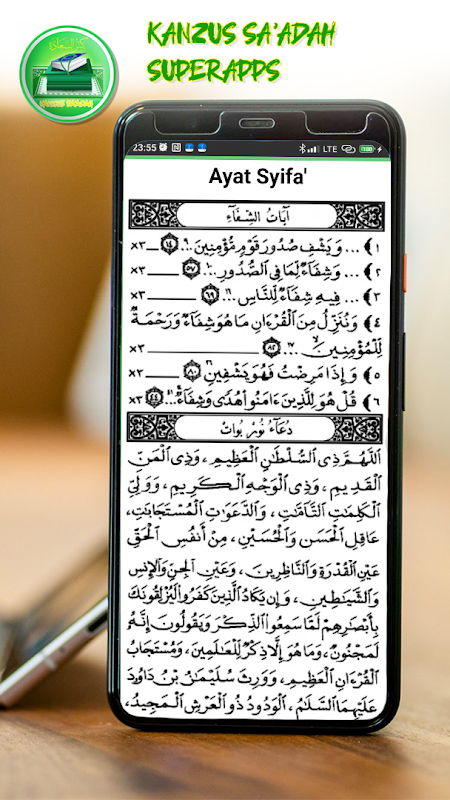 KANZUS SA'ADAH
SUPERAPPS
KANZUS SAADAH
23:55
LTE
100
Ayat Syifa'
آيَاتُ الشِّفَاءِ
١﴾ ... وَيَشْفِ صُدُورَ قَوْمٍ مُّؤْمِنِينَ ... ١٤ __ ×٣
٢﴾ ... وَشِفَاءٌ لِّمَا فِى الصُّدُورِ ... ٥٧ ____ ×٣
٣﴾ ... فِيهِ شِفَاءٌ لِّلنَّاسِ ... ٦٩ ______ ×٣
٤﴾ وَنُنَزِّلُ مِنَ الْقُرْءَانِ مَا هُوَ شِفَاءٌ وَرَحْمَةٌ
لِّلْمُؤْمِنِينَ ... ٨٢ ______________ ×٣
٥﴾ وَإِذَا مَرِضْتُ فَهُوَ يَشْفِينِ ٨٠ ______ ×٣
٦﴾ قُلْ هُوَ لِلَّذِينَ ءَامَنُوا هُدًى وَشِفَاءٌ ... ٤٤ ×٣
دُعَاءُ نُوْرْ بُوَاتْ
اَللّٰهُمَّ ذِى السُّلْطَانِ الْعَظِيْمِ ، وَذِى الْمَنِّ
الْقَدِيمِ ، وَذِى الْوَجْهِ الْكَرِيمِ ، وَوَلِيِّ
الْكَلِمَاتِ التَّآمَّاتِ ، وَالدَّعَوَاتِ الْمُسْتَجَابَاتِ ،
عَاقِلِ الْحَسَنِ وَالْحُسَيْنِ ، مِنْ أَنْفُسِ الْحَقِّ
عَيْنِ الْقُدْرَةِ وَالنَّاظِرِينَ ، وَعَيْنِ الْجِنِّ وَالْإِنْسِ
وَالشَّيَاطِينِ ، وَإِن يَكَادُ الَّذِينَ كَفَرُوا لَيُزْلِقُونَكَ
بِأَبْصَارِهِمْ لَمَّا سَمِعُوا الذِّكْرَ وَيَقُولُونَ إِنَّهُ
لَمَجْنُونٌ ، وَمَا هُوَ إِلَّا ذِكْرٌ لِّلْعَالَمِينَ ، وَمُسْتَجَابُ
الْقُرْءَانِ الْعَظِيمِ ، وَوَرِثَ سُلَيْمَانُ بْنُ دَاوُدَ
عَلَيْهِمَا السَّلَامُ ، الْوَدُودُ ذُو الْعَرْشِ الْمَجِيدُ ،